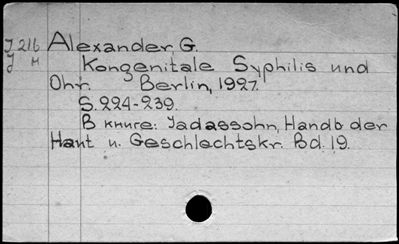 J 216 Alexander, G.
J м Kongenitale Syphilis und
Ohr. Berlin, 1927.
S. 224-239.
В книге: Jadassohn, Handb. der
Haut u. Geschlechtskr. Bd. 19.